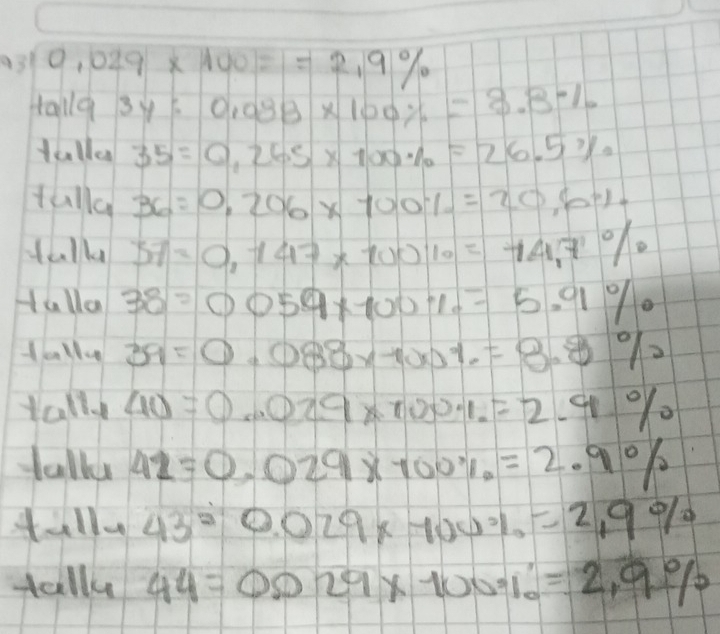 0,029 x 100 = = 2,9%
talla 34 = 0,088 x 100% = 8.8%
talla 35 = 0,265 x 100% = 26.5%
talla 36 = 0,206 x 100% = 20,6%
talla 37 = 0,147 x 100% = 14,7%
talla 38 = 0 059 x 100% = 5.9%
talla 39 = 0.088 x 100% = 8.8%
talla 40 = 0.029 x 100% = 2.9%
talla 42 = 0.029 x 100% = 2.9%
talla 43 = 0.029 x 100% = 2,9%
talla 44 = 0.029 x 100% = 2,9%